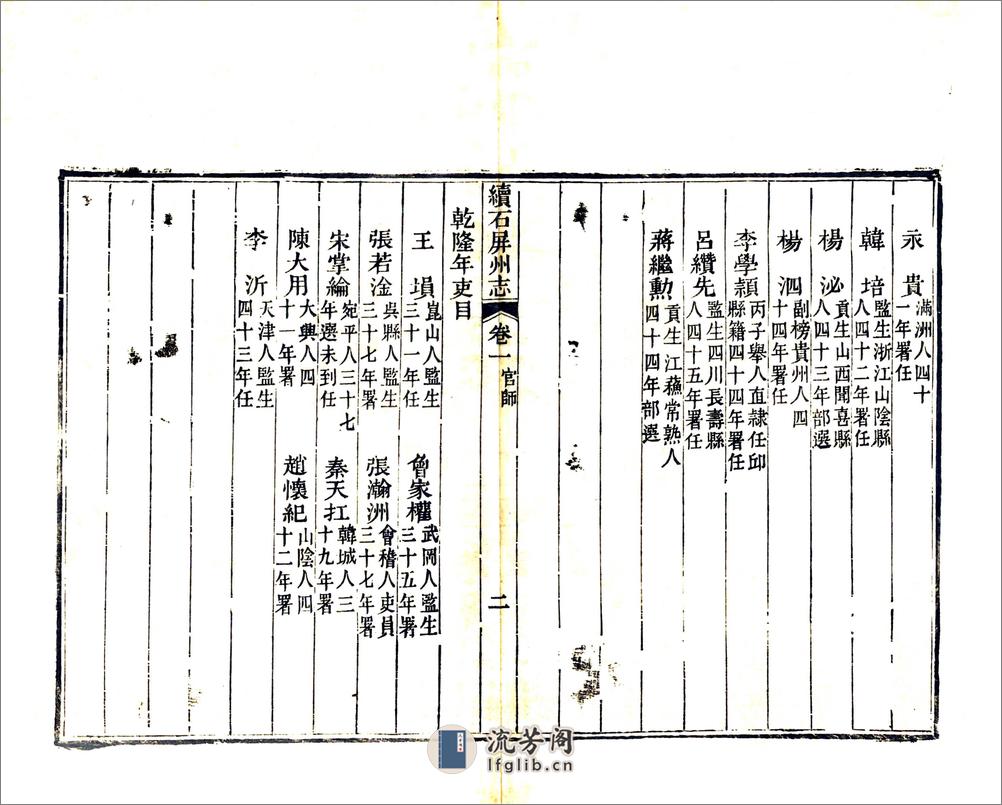 永 貴滿洲人四十一年署任
韓 培監生浙江山陰縣人四十二年署任
楊 泌貢生山西聞喜縣人四十三年部選
楊 泗副榜貴州人四十四年署任
李學顈丙子舉人直隸任邱縣籍四十四年署任
呂纘先監生四川長壽縣人四十五年署任
蔣繼勲貢生江蘓常熟人四十四年部選
續石屏州志 卷一 官師 二
乾隆年吏目
王 塤崑山人監生三十一年任 曾家權武岡人監生三十五年署
張若淦吳縣人監生三十七年署 張瀚洲會稽人吏員三十七年署
宋掌綸宛平人三十七年選未到任 秦天扛韓城人三十九年署
陳大用大興人四十一年署 趙懷紀山陰人四十二年署
李 沂天津人監生四十三年任
流芳阁
lfglib.cn